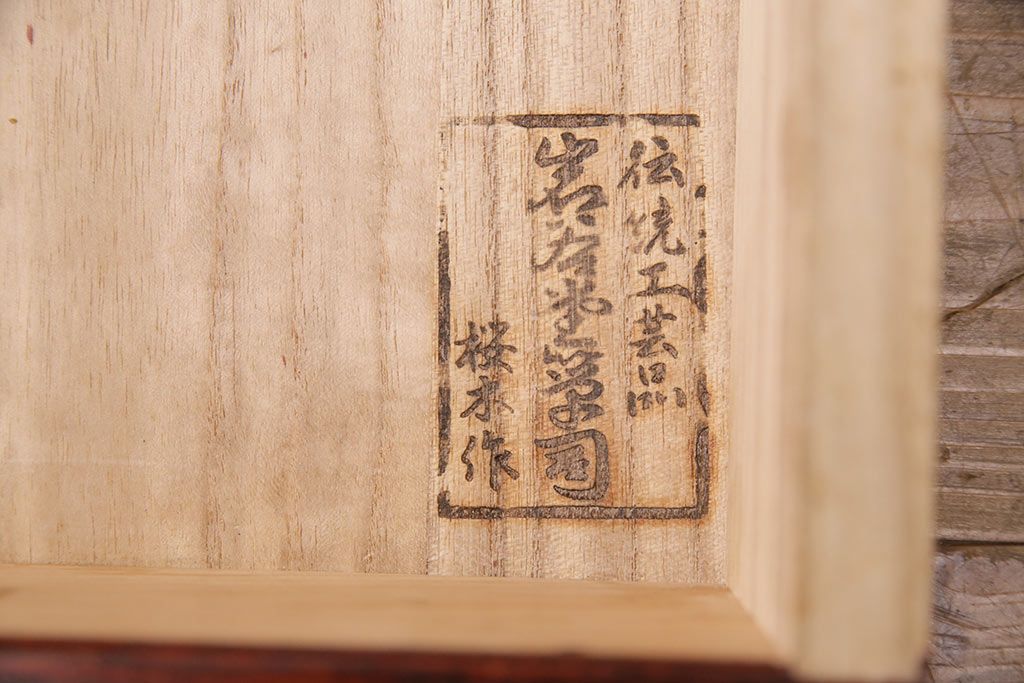 伝統工芸品
岩谷堂箪司
桜木作